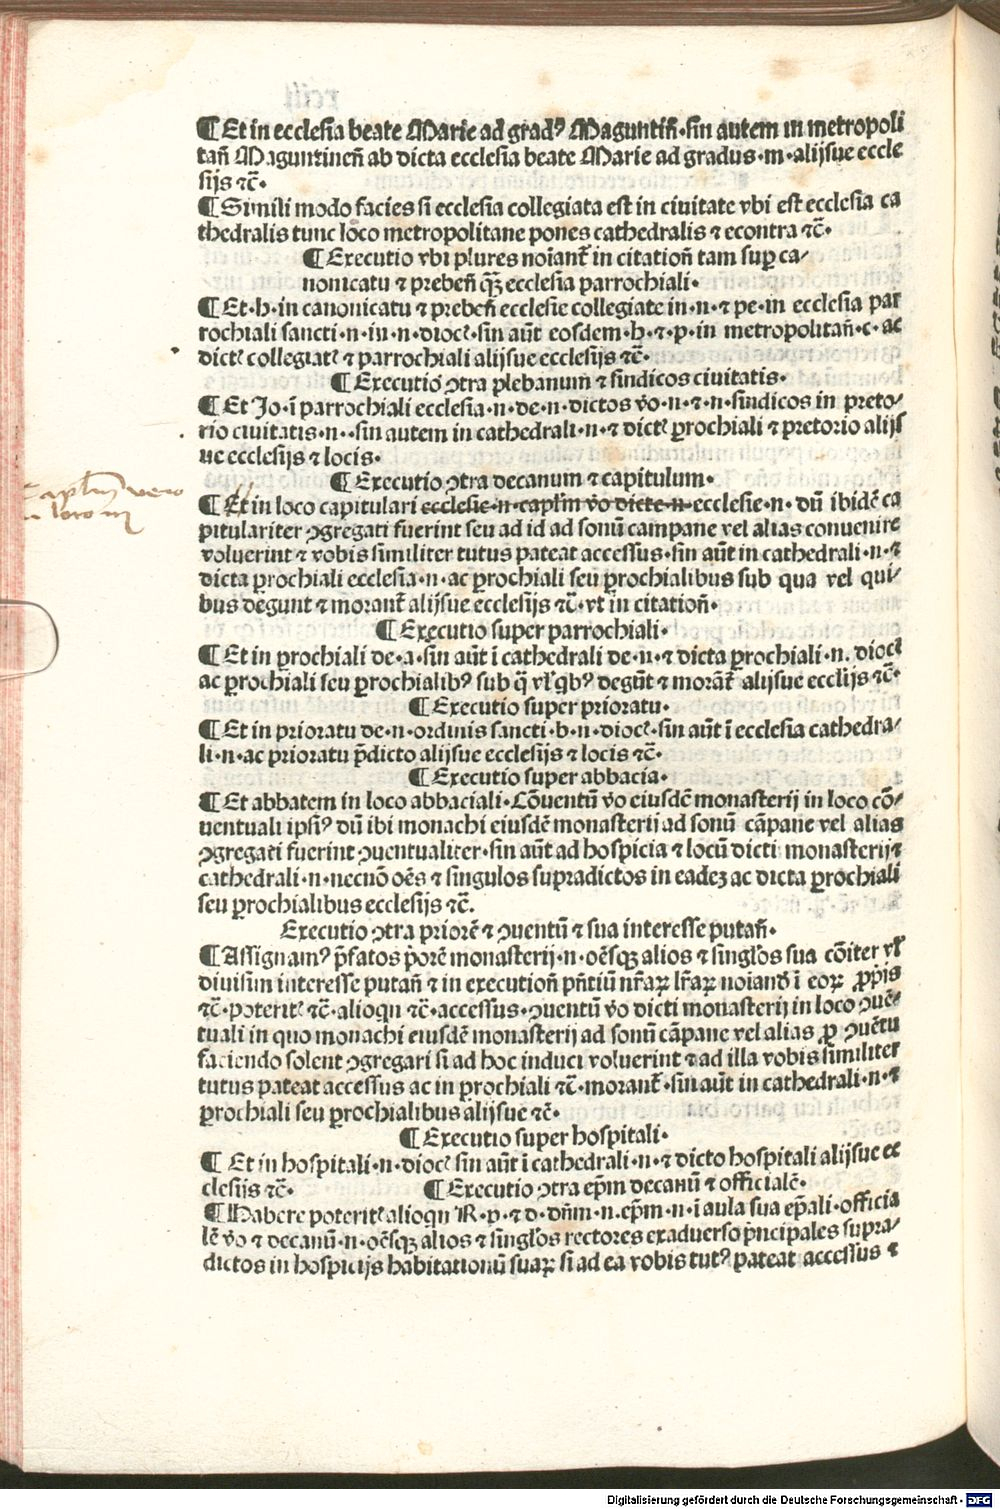 ¶ Et in ecclesia beate Marie ad gradꝰ Maguntiñ·sin autem in metropoli
tañ Maguntineñ ab dicta ecclesia beate Marie ad gradus·m·alijsue eccle
sijs ⁊c̃·
¶ Simili modo facies si ecclesia collegiata est in ciuitate vbi est ecclesia ca
thedralis tunc loco metropolitane pones cathedralis ⁊ econtra ⁊c̃·
¶ Executio vbi plures noiant᷑ in citationẽ tam suꝑ ca/
nonicatu ⁊ prebeñ qꝫ ecclesia parrochiali·
¶ Et·h·in canonicatu ⁊ prebeñ ecclesie collegiate in·n·⁊ pe·in ecclesia par
rochiali sancti·n·in·n·dioc̃·sin aũt eosdem·h·⁊·p·in metropolitañ·c·ac
dict̃ collegiat̃ ⁊ parrochiali alijsue ecclesijs ⁊c̃·
¶ Executio ꝯtra plebanum ⁊ sindicos ciuitatis·
¶ Et Jo·ĩ parrochiali ecclesia·n·de·n·dictos v̊o·n·⁊·n·sindicos in preto/
rio ciuitatis·n··sin autem in cathedrali·n·⁊ dict̃ ꝑrochiali ⁊ pretorio alijs
ue ecclesijs ⁊ locis·
¶ Executio ꝯtra decanum ⁊ capitulum·
¶ Et in loco capitulari ecclesie·n·capl̃m v̊o dicte·n·ecclesie·n·dũ ibidẽ ca
pitulariter ꝯgregati fuerint seu ad id ad sonũ campane vel alias conuenire
voluerint ⁊ vobis similiter tutus pateat accessus·sin aũt in cathedrali·n·⁊
dicta ꝑrochiali ecclesia·n·ac ꝑrochiali seu ꝑrochialibus sub qua vel qui/
bus degunt ⁊ morant᷑ alijsue ecclesijs ⁊c̃·vt in citationẽ·
¶ Executio super parrochiali·
¶ Et in ꝑrochiali de·a·sin aũt ĩ cathedrali de·n·⁊ dicta ꝑrochiali·n·dioc̃
ac ꝑrochiali seu ꝑrochialibꝰ sub q̃ vl̃ qbꝰ degũt ⁊ morãt᷑ alijsue eccl̃ijs ⁊c̃·
¶ Executio super prioratu·
¶ Et in prioratu de·n·ordinis sancti·b·n·dioc̃·sin aũt ĩ ecclesia cathedra/
li·n·ac prioratu p̃dicto alijsue ecclesijs ⁊ locis ⁊c̃·
¶ Executio super abbacia·
¶ Et abbatem in loco abbaciali·Cõuentũ v̊o eiusdẽ monasterij in loco cõ/
uentuali ipsiꝰ dũ ibi monachi eiusdẽ monasterij ad sonũ cãpane vel alias
ꝯgregati fuerint ꝯuentualiter·sin aũt ad hospicia ⁊ locũ dicti monasterij ⁊
cathedrali·n·necnõ oẽs ⁊ singulos supradictos in eadeꝫ ac dicta ꝑrochiali
seu ꝑrochialibus ecclesijs ⁊c̃.
Executio ꝯtra priorẽ ⁊ ꝯuentũ ⁊ sua interesse putañ·
¶ Assignamꝰ p̃fatos p̃orẽ monasterij·n·oẽsqꝫ alios ⁊ singl̃os sua cõiter vl̃
diuisim interesse putañ ⁊ in executionẽ pñtiũ nr̃aꝝ lr̃aꝝ noiand̾ ĩ eoꝝ ꝓpijs
⁊c̃·poterit᷑ ⁊c̃·alioqn ⁊c̃·accessus·ꝯuentũ v̊o dicti monasterij in loco ꝯuẽ/
tuali in quo monachi eiusdẽ monasterij ad sonũ cãpane vel alias ꝓ ꝯuẽtu
faciendo solent ꝯgregari si ad hoc induci voluerint ⁊ ad illa vobis similiter
tutus pateat accessus ac in ꝑrochiali ⁊c̃·morant᷑·sin aũt in cathedrali·n·⁊
ꝑrochiali seu ꝑrochialibus alijsue ⁊c̃·
¶ Executio super hospitali·
¶ Et in hospitali·n·dioc̃ sin aũt ĩ cathedrali·n·⁊ dicto hospitali alijsue ec
clesijs ⁊c̃· ¶ Executio ꝯtra ep̃m decanũ ⁊ officialẽ·
¶ Habere poterit᷑ alioqn R·p·⁊ d·dñm·n·ep̃m·n·ĩ aula sua ep̃ali·officia
lẽ v̊o ⁊ decanũ·n·oẽsqꝫ alios ⁊ singl̃os rectores exaduerso p̃ncipales supra/
dictos in hospicijs habitationũ suaꝝ si ad ea vobis tutꝰ pateat accessus ⁊
capl̃m vero
Digitalisierung gefördert durch die Deutsche Forschungsgemeinschaft - DFG